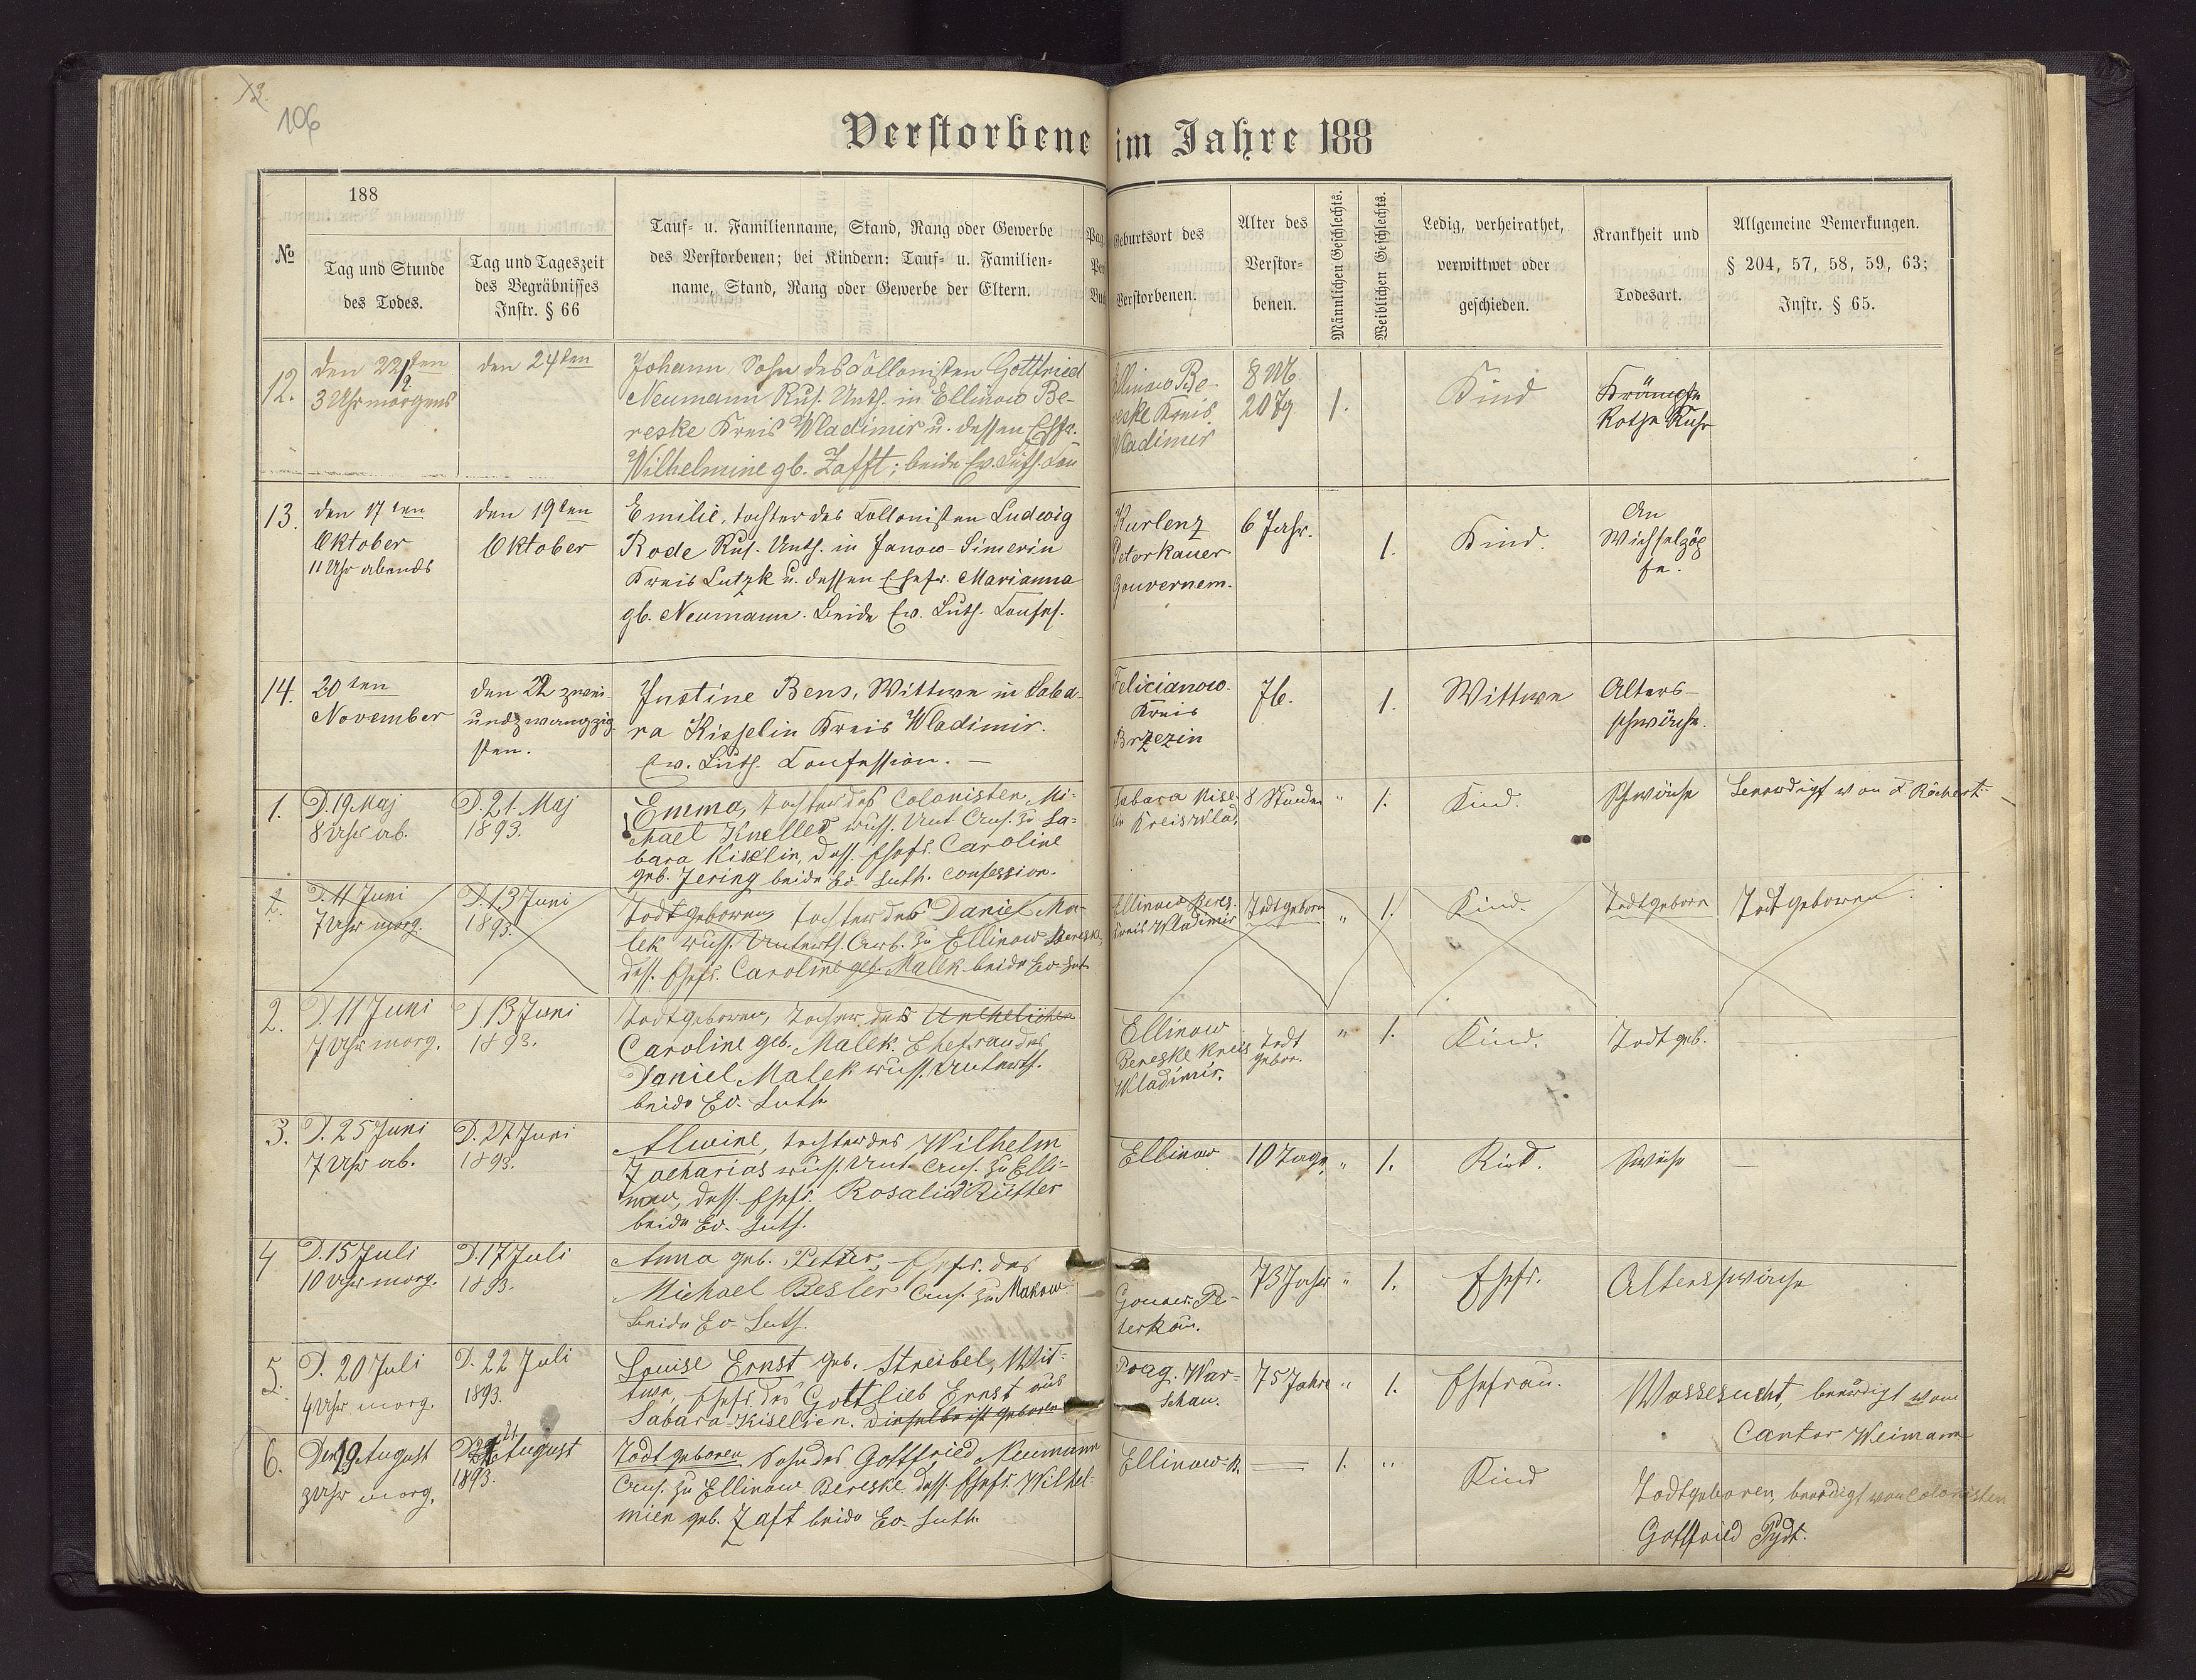 106
Verstorbene im Jahre 188
№
188
Tag und Stunde
des Todes.
Tag und Tageszeit
des Begräbnisses
Instr. § 66
Tauf- u. Familienname, Stand, Rang oder Gewerbe
des Verstorbenen; bei Kindern: Tauf- u. Familien-
name, Stand, Rang oder Gewerbe der Eltern.
Geburtsort des
Verstorbenen.
Alter des
Verstor-
benen.
Männlichen Geschlechts.
Weiblichen Geschlechts.
Ledig, verheirathet,
verwittwet oder
geschieden.
Krankheit und
Todesart.
Allgemeine Bemerkungen.
§ 204, 57, 58, 59, 63;
Instr. § 65.
12.
den 22ten
9.
3 Uhr morgens
den 24ten
Johann, Sohn des Collonisten Gottfried
Neumann Rus. Unth. in Ellinow Be-
reske Kreis Wladimir u. dessen Ehfr.
Wilhelmine gb. Zafft; beide Ev. Luth. Con
Ellinow Be-
reske Kreis
Wladimir
8 M.
20 Tg.
1.
Kind
Krämpfe
Rothe Ruhr
13.
den 17ten
Oktober
11 Uhr abends
den 19ten
Oktober
Emilie, tochter des Collonisten Ludwig
Rode Rus. Unth. in Janow-Simerin
Kreis Lutzk u. dessen Ehefr. Marianna
gb. Neumann. Beide Ev. Luth. Confes.
Kurlenz
Peterkauer
Gouvernem.
6 Jahr.
1.
Kind.
An
Wichselzöp
fe.
14.
20ten
November
den 22 zwei-
undzwanzig
sten.
Justine Bens, Wittwe in Saba-
ra Kisselin Kreis Wladimir.
Ev. Luth. Confession. —
Felicianow.
Kreis
Brzezin
76.
1.
Wittwe
Alters-
schwäche.
1.
D. 19 Maj
8 Uhr ab.
D. 21. Maj
1893.
Emma, tochter des Colonisten Mi-
chael Kneller russ. Unt. Ans. zu Sa-
bara Kiselin, dess. Ehefr. Caroline
geb. Jering beide Ev. Luth. confession.
Sabara Kise-
lin Kreis Wlad.
8 Stunden
"
1.
Kind.
Schwäche
Beerdigt von F. Röchert
2.
D. 11 Juni
7 Uhr morg.
D. 13 Juni
1893.
Todtgeboren, tochter des Daniel Ma-
lek russ. Unterth. zu Ellinow Bereske
dess. Ehefr. Caroline geb. Malek beide Ev. Lut
Ellinow Beres.
Kreis Wladimir
Todtgeborn
"
1.
Kind.
Todtgeborn
Todtgeboren
2.
D. 11 Juni
7 Uhr morg.
D 13 Juni
1893.
Todtgeboren, Tochter des Unehelichen
Caroline geb. Malek. Ehefrau des
Daniel Malek russ. Unterth.
beide Ev. Luth
Ellinow
Bereske Kreis
Wladimir.
Todt
gebor.
"
1.
Kind.
Todtgeb.
3.
D. 25 Juni
7 Uhr ab.
D. 27 Juni
1893.
Alwine, tochter des Wilhelm
Zacharias russ. Unt. Ans. zu Elli-
now, dess. Ehefr. Rosalia Rütter
beide Ev. Luth.
Ellinow
10 Tage
"
1.
Kind.
Schwäche
4
D. 15 Juli
10 Uhr morg.
D. 17 Juli
1893.
Anna geb. Petter, Ehefr. des
Michael Besler Ans. zu Makow
Beide Ev. Luth.
Gouver. Pe-
terkau.
73 Jahr
"
1.
Ehefr.
Altersschwäche
5.
D. 20 Juli
4 Uhr morg.
D. 22 Juli
1893.
Louise Ernst geb. Streibel, Wit-
twe, Ehefr. des Gottlieb Ernst aus
Sabara-Kiselien. Dieselbe ist geboren
Prag. War-
schau.
75 Jahre
"
1.
Ehefrau.
Wassesucht, beerdigt vom
Cantor Weimann
6.
Den 19 August
3 Uhr morg.
D. 21 August
1893.
Todtgeboren Sohn des Gottfried Neumann
Ans. zu Ellinow Bereske dess. Ehefr. Wilhel-
mien geb. Zaft beide Ev. Luth.
Ellinow-B.
—
1.
"
Kind
Todtgeboren, beerdigt von Colonisten
Gottfried Pydt.